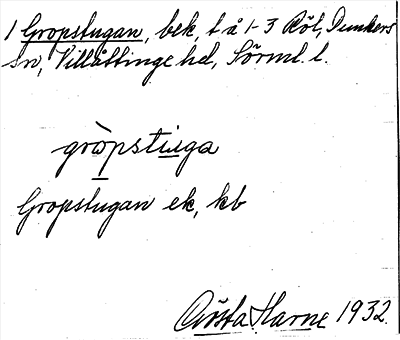 1 Gropstugan, bek, t å 1-3 Röl, Dunkers
sn, Villåttinge hd, Sörml. l.
gròpstuga
Gropstugan ek, kb
Gösta Harne 1932.